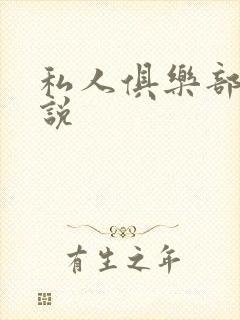 私人俱樂部
說
有生之年